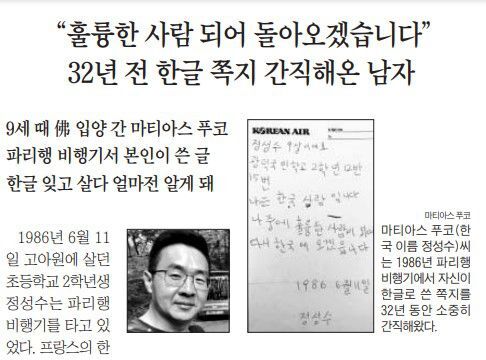 “훌륭한 사람 되어 돌아오겠습니다”
32년 전 한글 쪽지 간직해온 남자
9세 때 佛 입양 간 마티아스 푸코
파리행 비행기서 본인이 쓴 글
한글 잊고 살다 얼마전 알게 돼
1986년 6월 11
일 고아원에 살던
초등학교 2학년생
정성수는 파리행
비행기를 타고 있
었다. 프랑스의 한
KOREAN AIR
정성수 9살이에요
국민학교 2학년 12반
15번
나는 한국 사람 입니다
나중에 훌륭한 사람이 되어
다시 한국에 오겠읍니다
1986 6월 11일
정성수
마티아스 푸코
마티아스 푸코(한
국 이름 정성수)씨
는 1986년 파리행
비행기에서 자신이
한글로 쓴 쪽지를
32년 동안 소중히
간직해왔다.